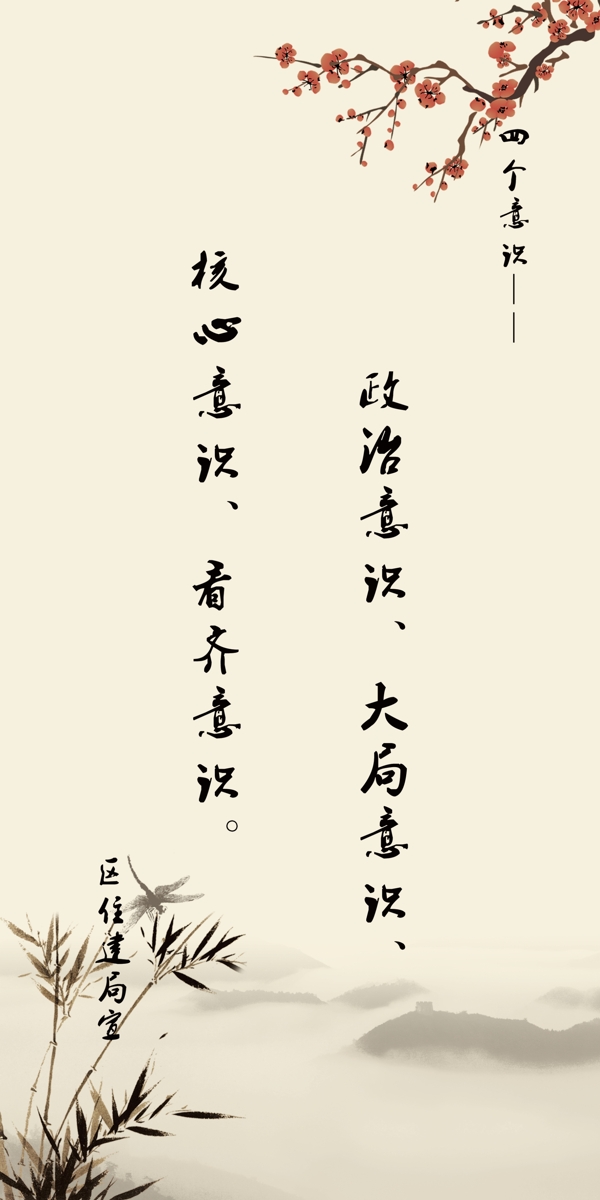 四个意识——
政治意识、大局意识、
核心意识、看齐意识。
区住建局宣